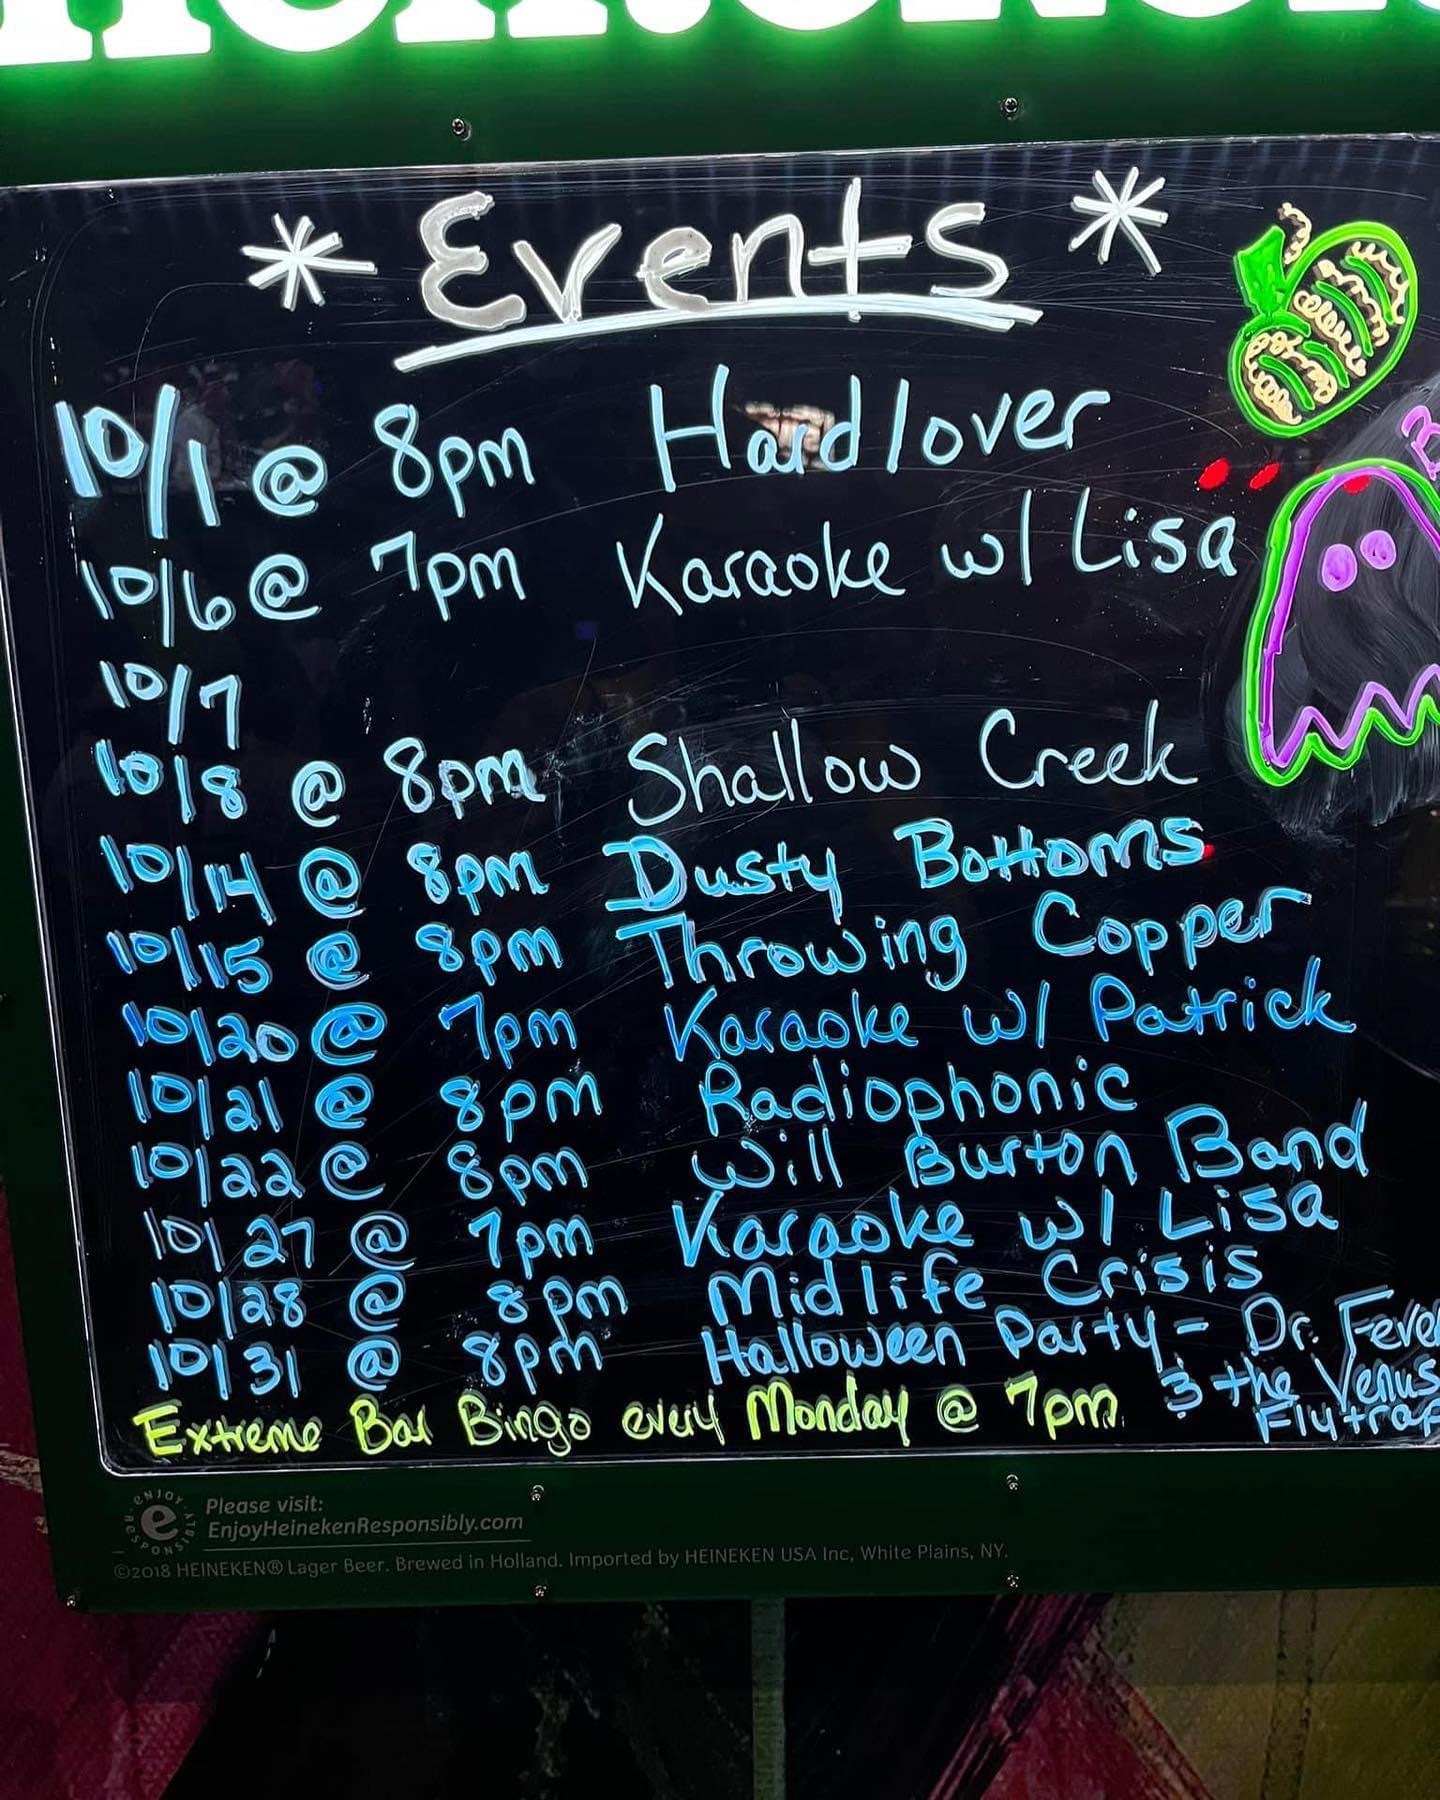 * Events *
10/1 @ 8pm Hardlover
10/6 @ 7pm Karaoke w/ Lisa
10/7
10/8 @ 8pm Shallow Creek
10/14 @ 8pm Dusty Bottoms
10/15 @ 8pm Throwing Copper
10/20 @ 7pm Karaoke w/ Patrick
10/21 @ 8pm Radiophonic
10/22 @ 8pm Will Burton Band
10/27 @ 7pm Karaoke w/ Lisa
10/28 @ 8pm Midlife Crisis
10/31 @ 8pm Halloween Party - Dr. Fever
& the Venus
Flytrap
Extreme Bar Bingo every Monday @ 7pm
ENJOY RESPONSIBLY
e
Please visit:
EnjoyHeinekenResponsibly.com
©2018 HEINEKEN® Lager Beer. Brewed in Holland. Imported by HEINEKEN USA Inc, White Plains, NY.